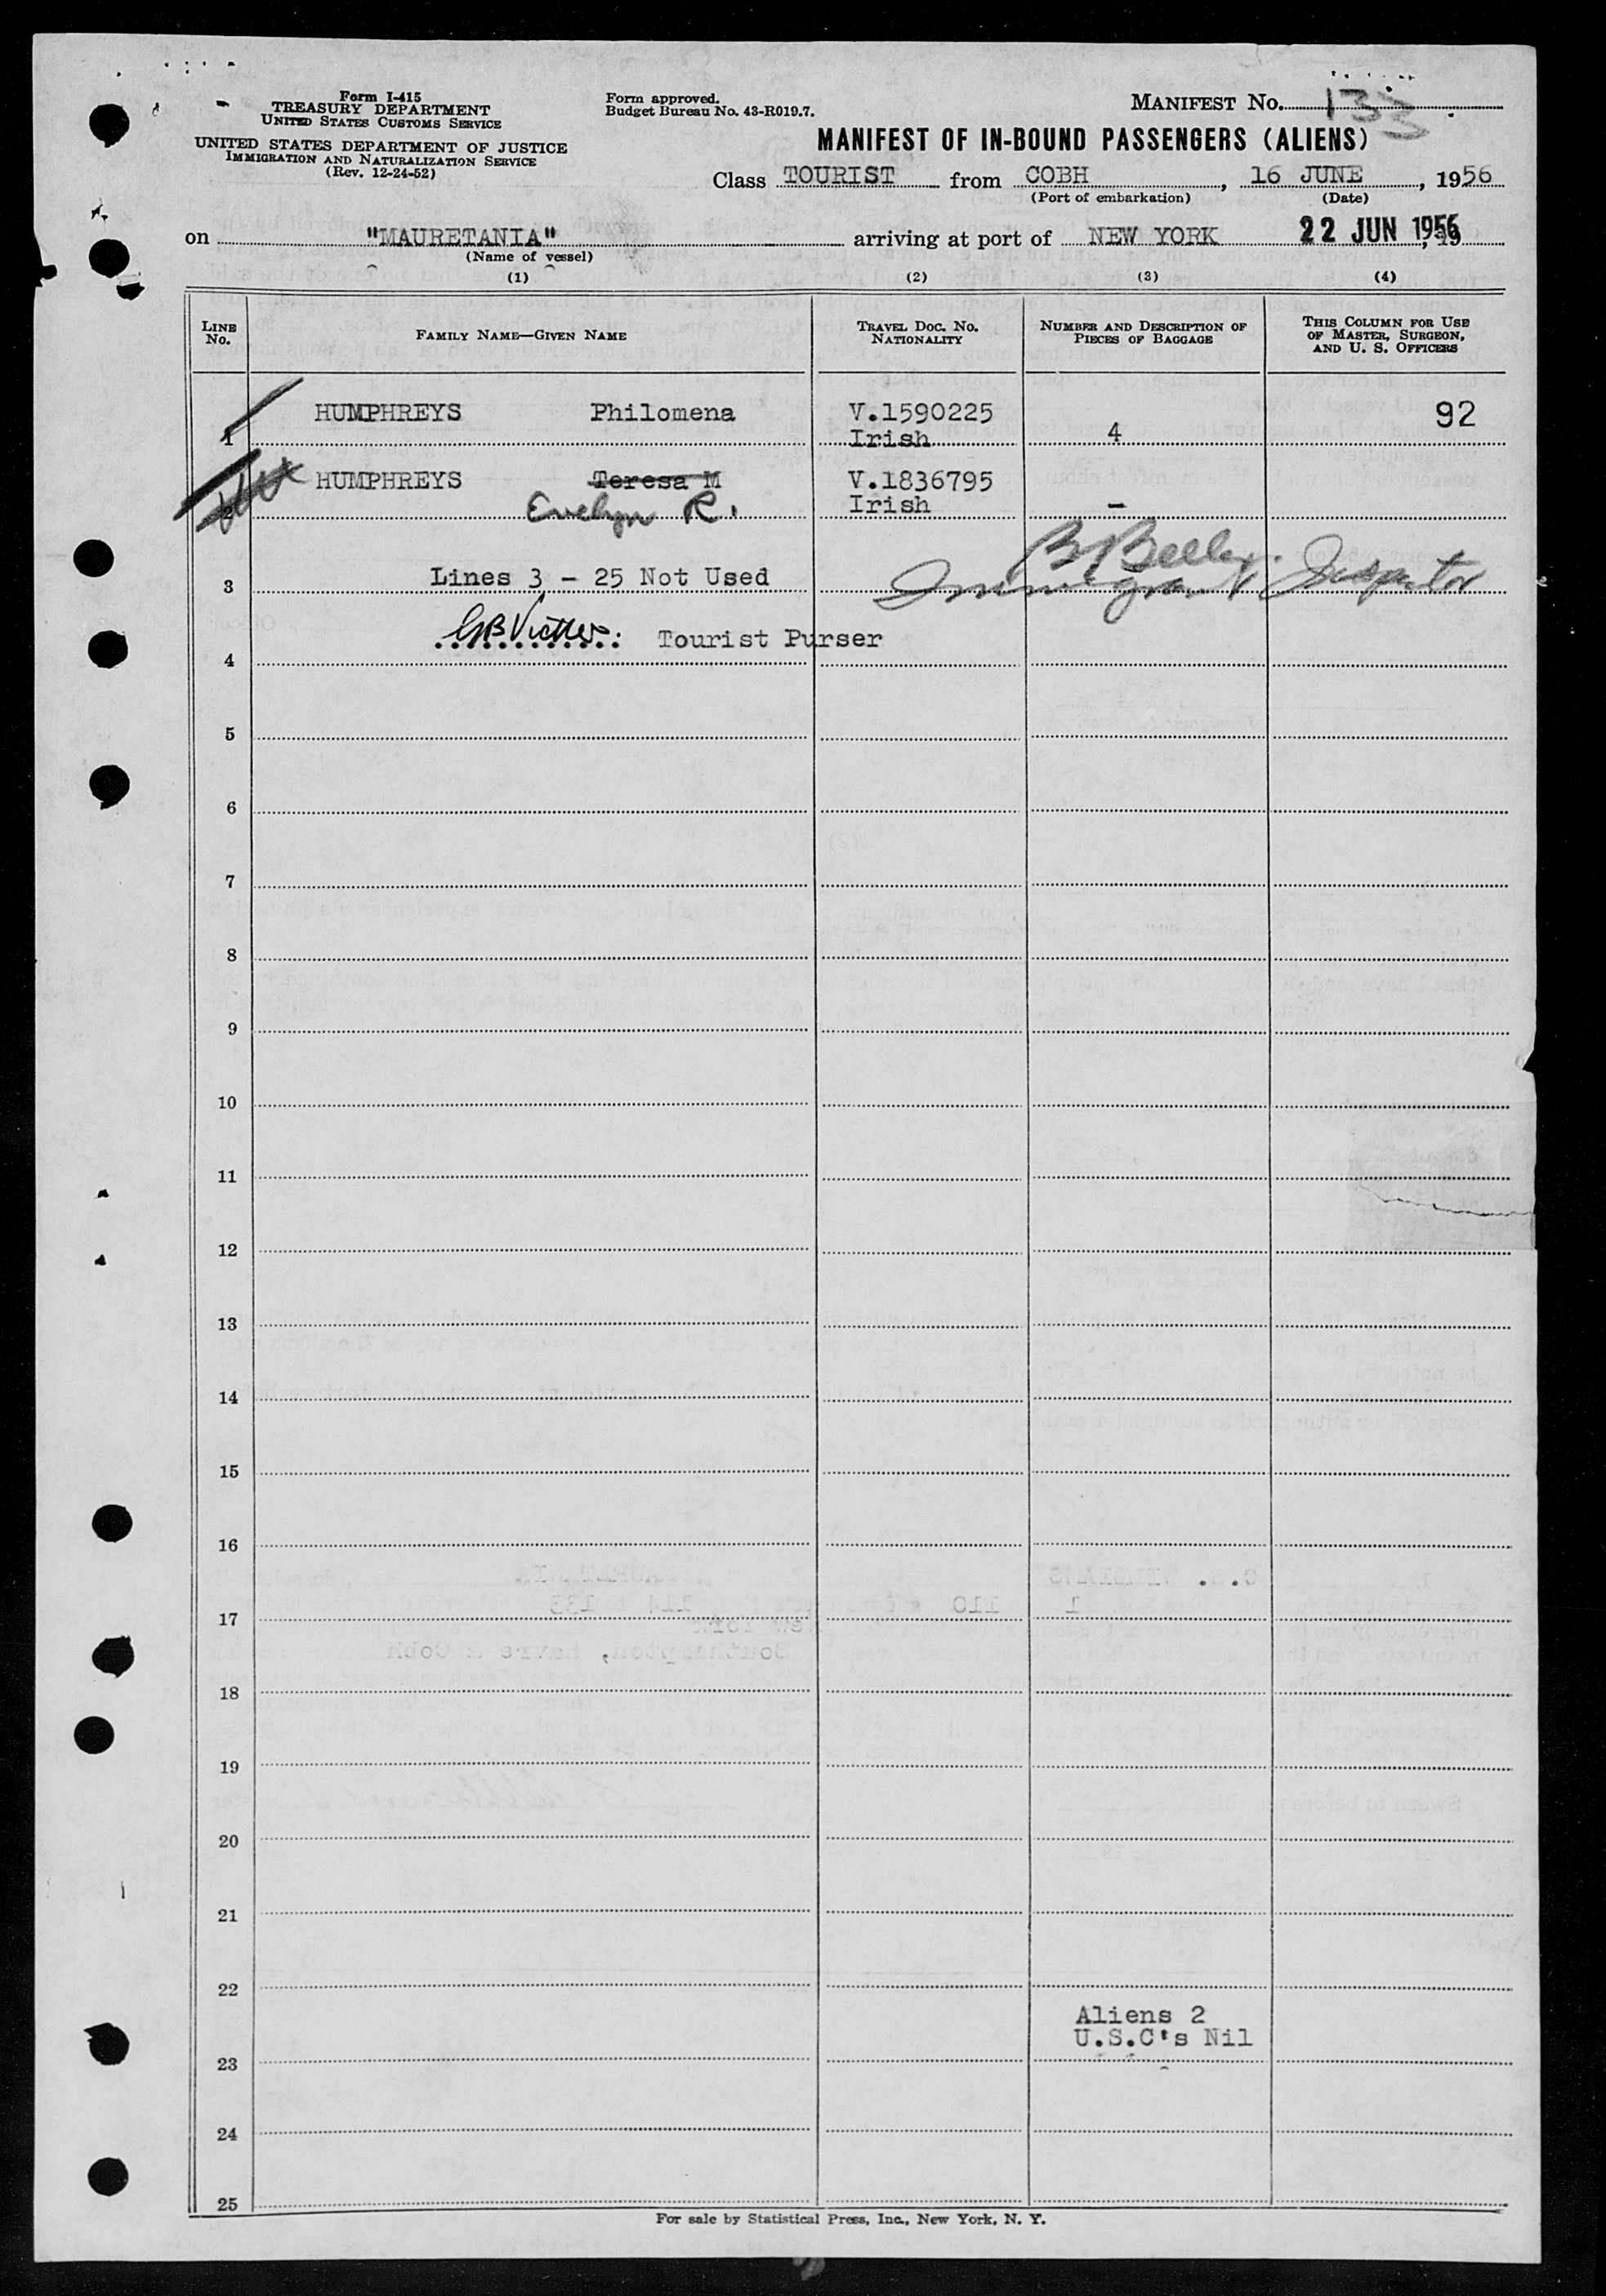 Form I-415
TREASURY DEPARTMENT
UNITED STATES CUSTOMS SERVICE
UNITED STATES DEPARTMENT OF JUSTICE
IMMIGRATION AND NATURALIZATION SERVICE
(Rev. 12-24-52)
Form approved.
Budget Bureau No. 43-R019.7.
MANIFEST No. 133
MANIFEST OF IN-BOUND PASSENGERS (ALIENS)
Class TOURIST from COBH, 16 JUNE, 1956
(Port of embarkation) (Date)
on "MAURETANIA" arriving at port of NEW YORK 22 JUN 1956, 19
(Name of vessel)
(1) (2) (3) (4)
LINE No. FAMILY NAME—GIVEN NAME TRAVEL DOC. No. NATIONALITY NUMBER AND DESCRIPTION OF PIECES OF BAGGAGE THIS COLUMN FOR USE OF MASTER, SURGEON, AND U. S. OFFICERS
HUMPHREYS Philomena V.1590225 92
1 Irish 4
HUMPHREYS Teresa M V.1836795
2 Evelyn R. Irish –
3 Lines 3 - 25 Not Used Immigrant Inspector
4 Tourist Purser
5
6
7
8
9
10
11
12
13
14
15
16
17
18
19
20
21
22
Aliens 2
U.S.C's Nil
23
24
25
For sale by Statistical Press, Inc., New York, N. Y.